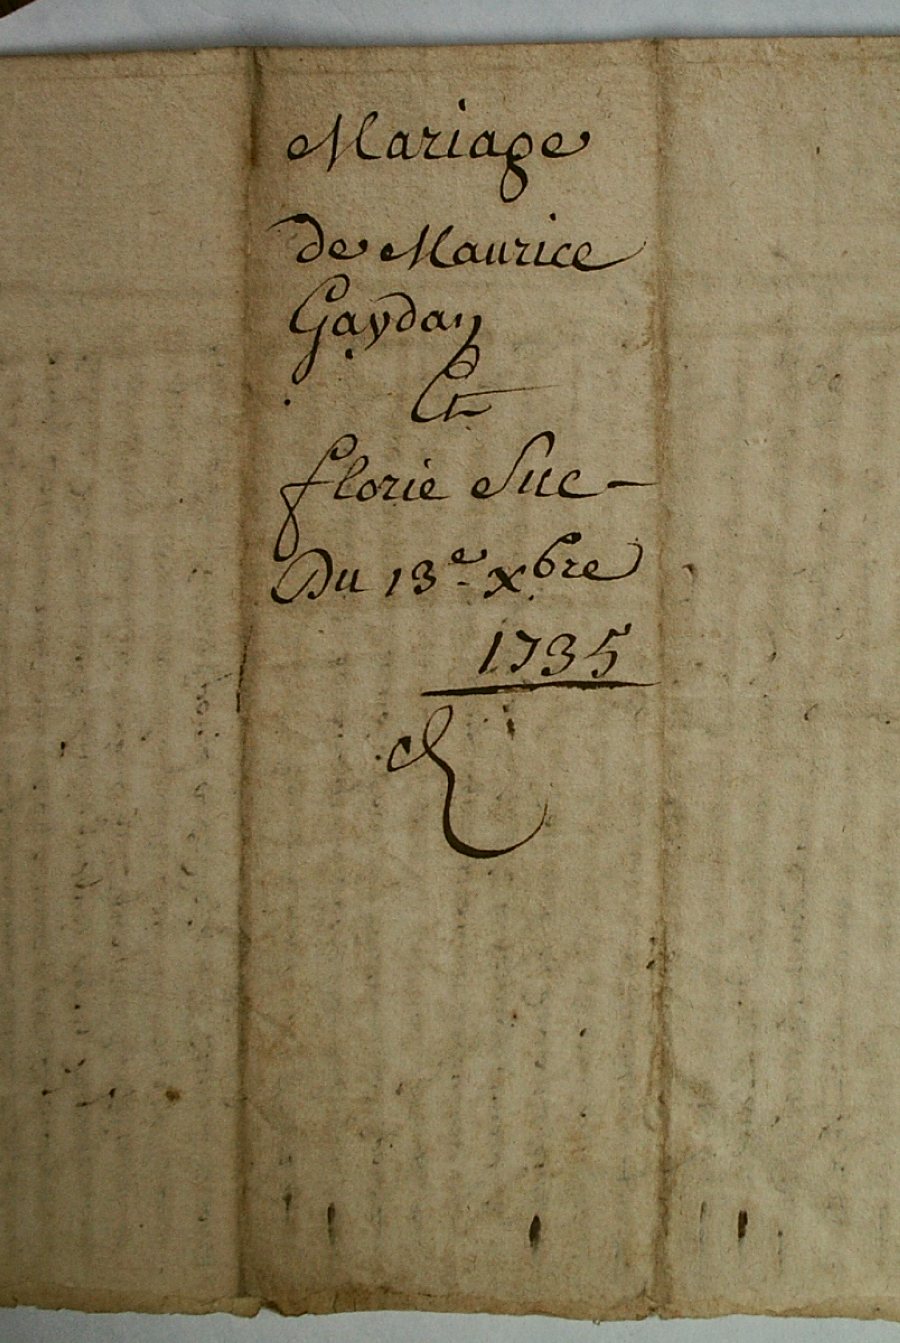 Mariage
de Maurice
Gaydan
Et
florie Suc -
Du 13e xbre
1735